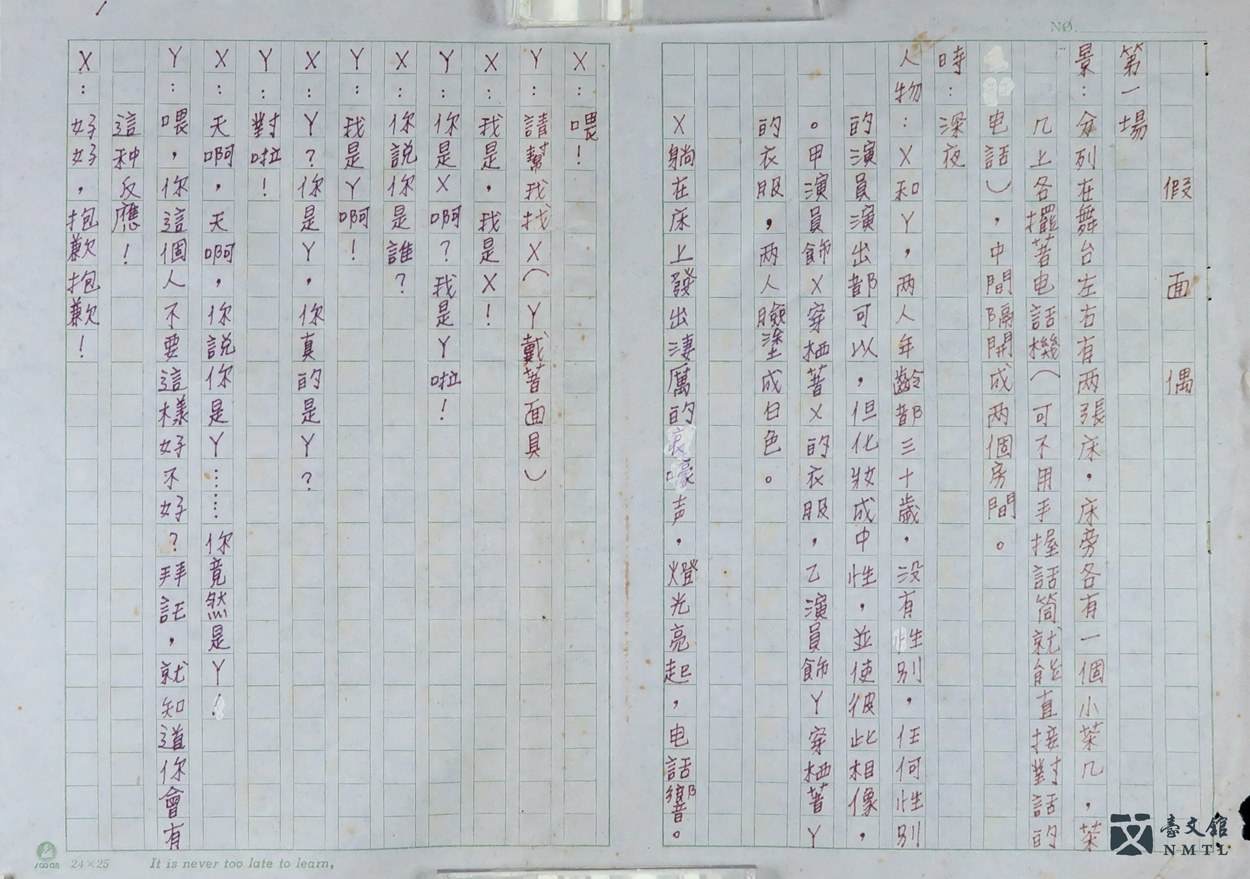 NO.
假面偶
第一場
景：分列在舞台左右有两張床，床旁各有一個小茶几，茶
几上各擺著电話機（可不用手握話筒就能直接對話的
电話），中間隔開成两個房間。
時：深夜
人物：X和Y，两人年齡都三十歲，没有性別，任何性別
的演員演出都可以，但化妝成中性，並使彼此相像，
。甲演員飾X穿栖著X的衣服，乙演員飾Y穿栖著Y
的衣服，两人臉塗成白色。
X躺在床上發出淒厲的哀嚎声，燈光亮起，电話響。
X：喂！
Y：請幫我找X（Y戴著面具）
X：我是，我是X！
Y：你是X啊？我是Y啦！
X：你說你是誰？
Y：我是Y啊！
X：Y？你是Y，你真的是Y？
Y：對啦！
X：天啊，天啊，你說你是Y……你竟然是Y！
Y：喂，你這個人不要這樣好不好？拜託，就知道你會有
這种反應！
X：好好，抱歉抱歉！
24×25
It is never too late to learn,
臺文館
NMTL